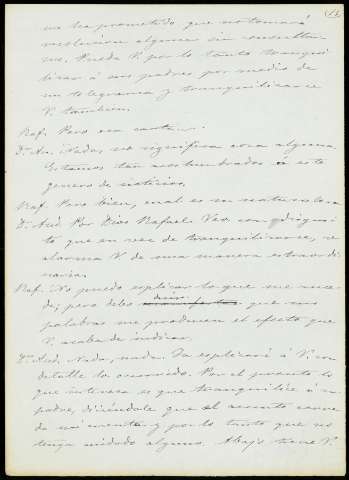 me ha prometido que no tomará
resolucion alguna sin consultar-
me. Puede V. por lo tanto tranqui-
lizar á sus padres por medio de
un telegrama y tranquilizarse
V. tambien.
Raf. Pero esa carta...
Dn. Au. Nada, no significa cosa alguna.
Estamos tan acostumbrados á este
genero de noticias.
Raf. Pero bien, cual es su naturaleza
Dn. Aud. Por Dios Rafael. Veo con disgus-
to que en vez de tranquilizarse, se
alarma V. de una manera estraordi-
naria.
Raf. No puedo esplicar lo que me suce-
de; pero debo decir que sus
palabras me producen el efecto que
V. acaba de indicar.
Dn. Aud. Nada, nada. Ya esplicaré á V. con
detalle lo ocurrido. Por el pronto lo
que interesa es que tranquilice á su
padre, diciéndole que el asunto corre
de mi cuenta y por lo tanto que no
tenga cuidado alguno. Abajo tiene V.